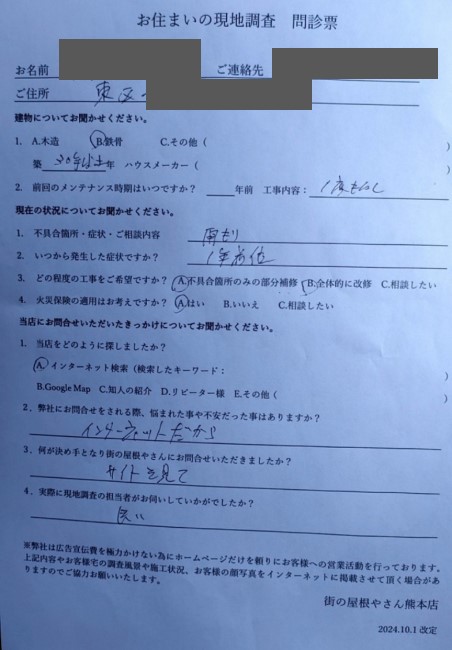 お住まいの現地調査 問診票
お名前 ご連絡先
ご住所 東区
建物についてお聞かせください。
1. A.木造 B.鉄骨 C.その他（ ）
築 30年以上 年 ハウスメーカー（ ）
2. 前回のメンテナンス時期はいつですか？ 年前 工事内容： 1度もなし
現在の状況についてお聞かせください。
1. 不具合箇所・症状・ご相談内容 雨もり
2. いつから発生した症状ですか？ 1年前位
3. どの程度の工事をご希望ですか？ A.不具合箇所のみの部分補修 B.全体的に改修 C.相談したい
4. 火災保険の適用はお考えですか？ A.はい B.いいえ C.相談したい
当店にお問合せいただいたきっかけについてお聞かせください。
1. 当店をどのように探しましたか？
A.インターネット検索（検索したキーワード： ）
B.Google Map C.知人の紹介 D.リピーター様 E.その他（ ）
2．弊社にお問合せをされる際、悩まれた事や不安だった事はありますか？
インターネットだから
3．何が決め手となり街の屋根やさんにお問合せいただきましたか？
サイトを見て
4．実際に現地調査の担当者がお伺いしていかがでしたか？
良い
※弊社は広告宣伝費を極力かけない為にホームページだけを頼りにお客様への営業活動を行っております。
上記内容やお客様宅の調査風景や施工状況、お客様の顔写真をインターネットに掲載させて頂く場合があ
りますのでご協力お願いいたします。
街の屋根やさん熊本店
2024.10.1 改定